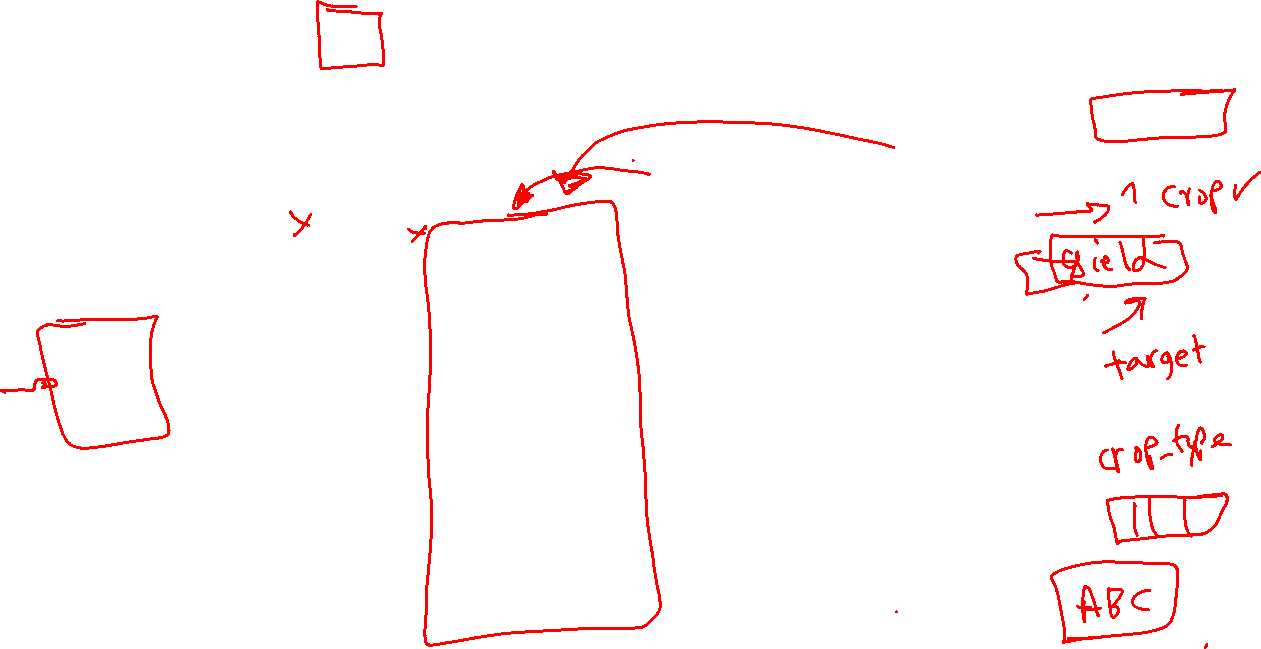 1 crop ✓
yield
target
crop_type
ABC
x
x